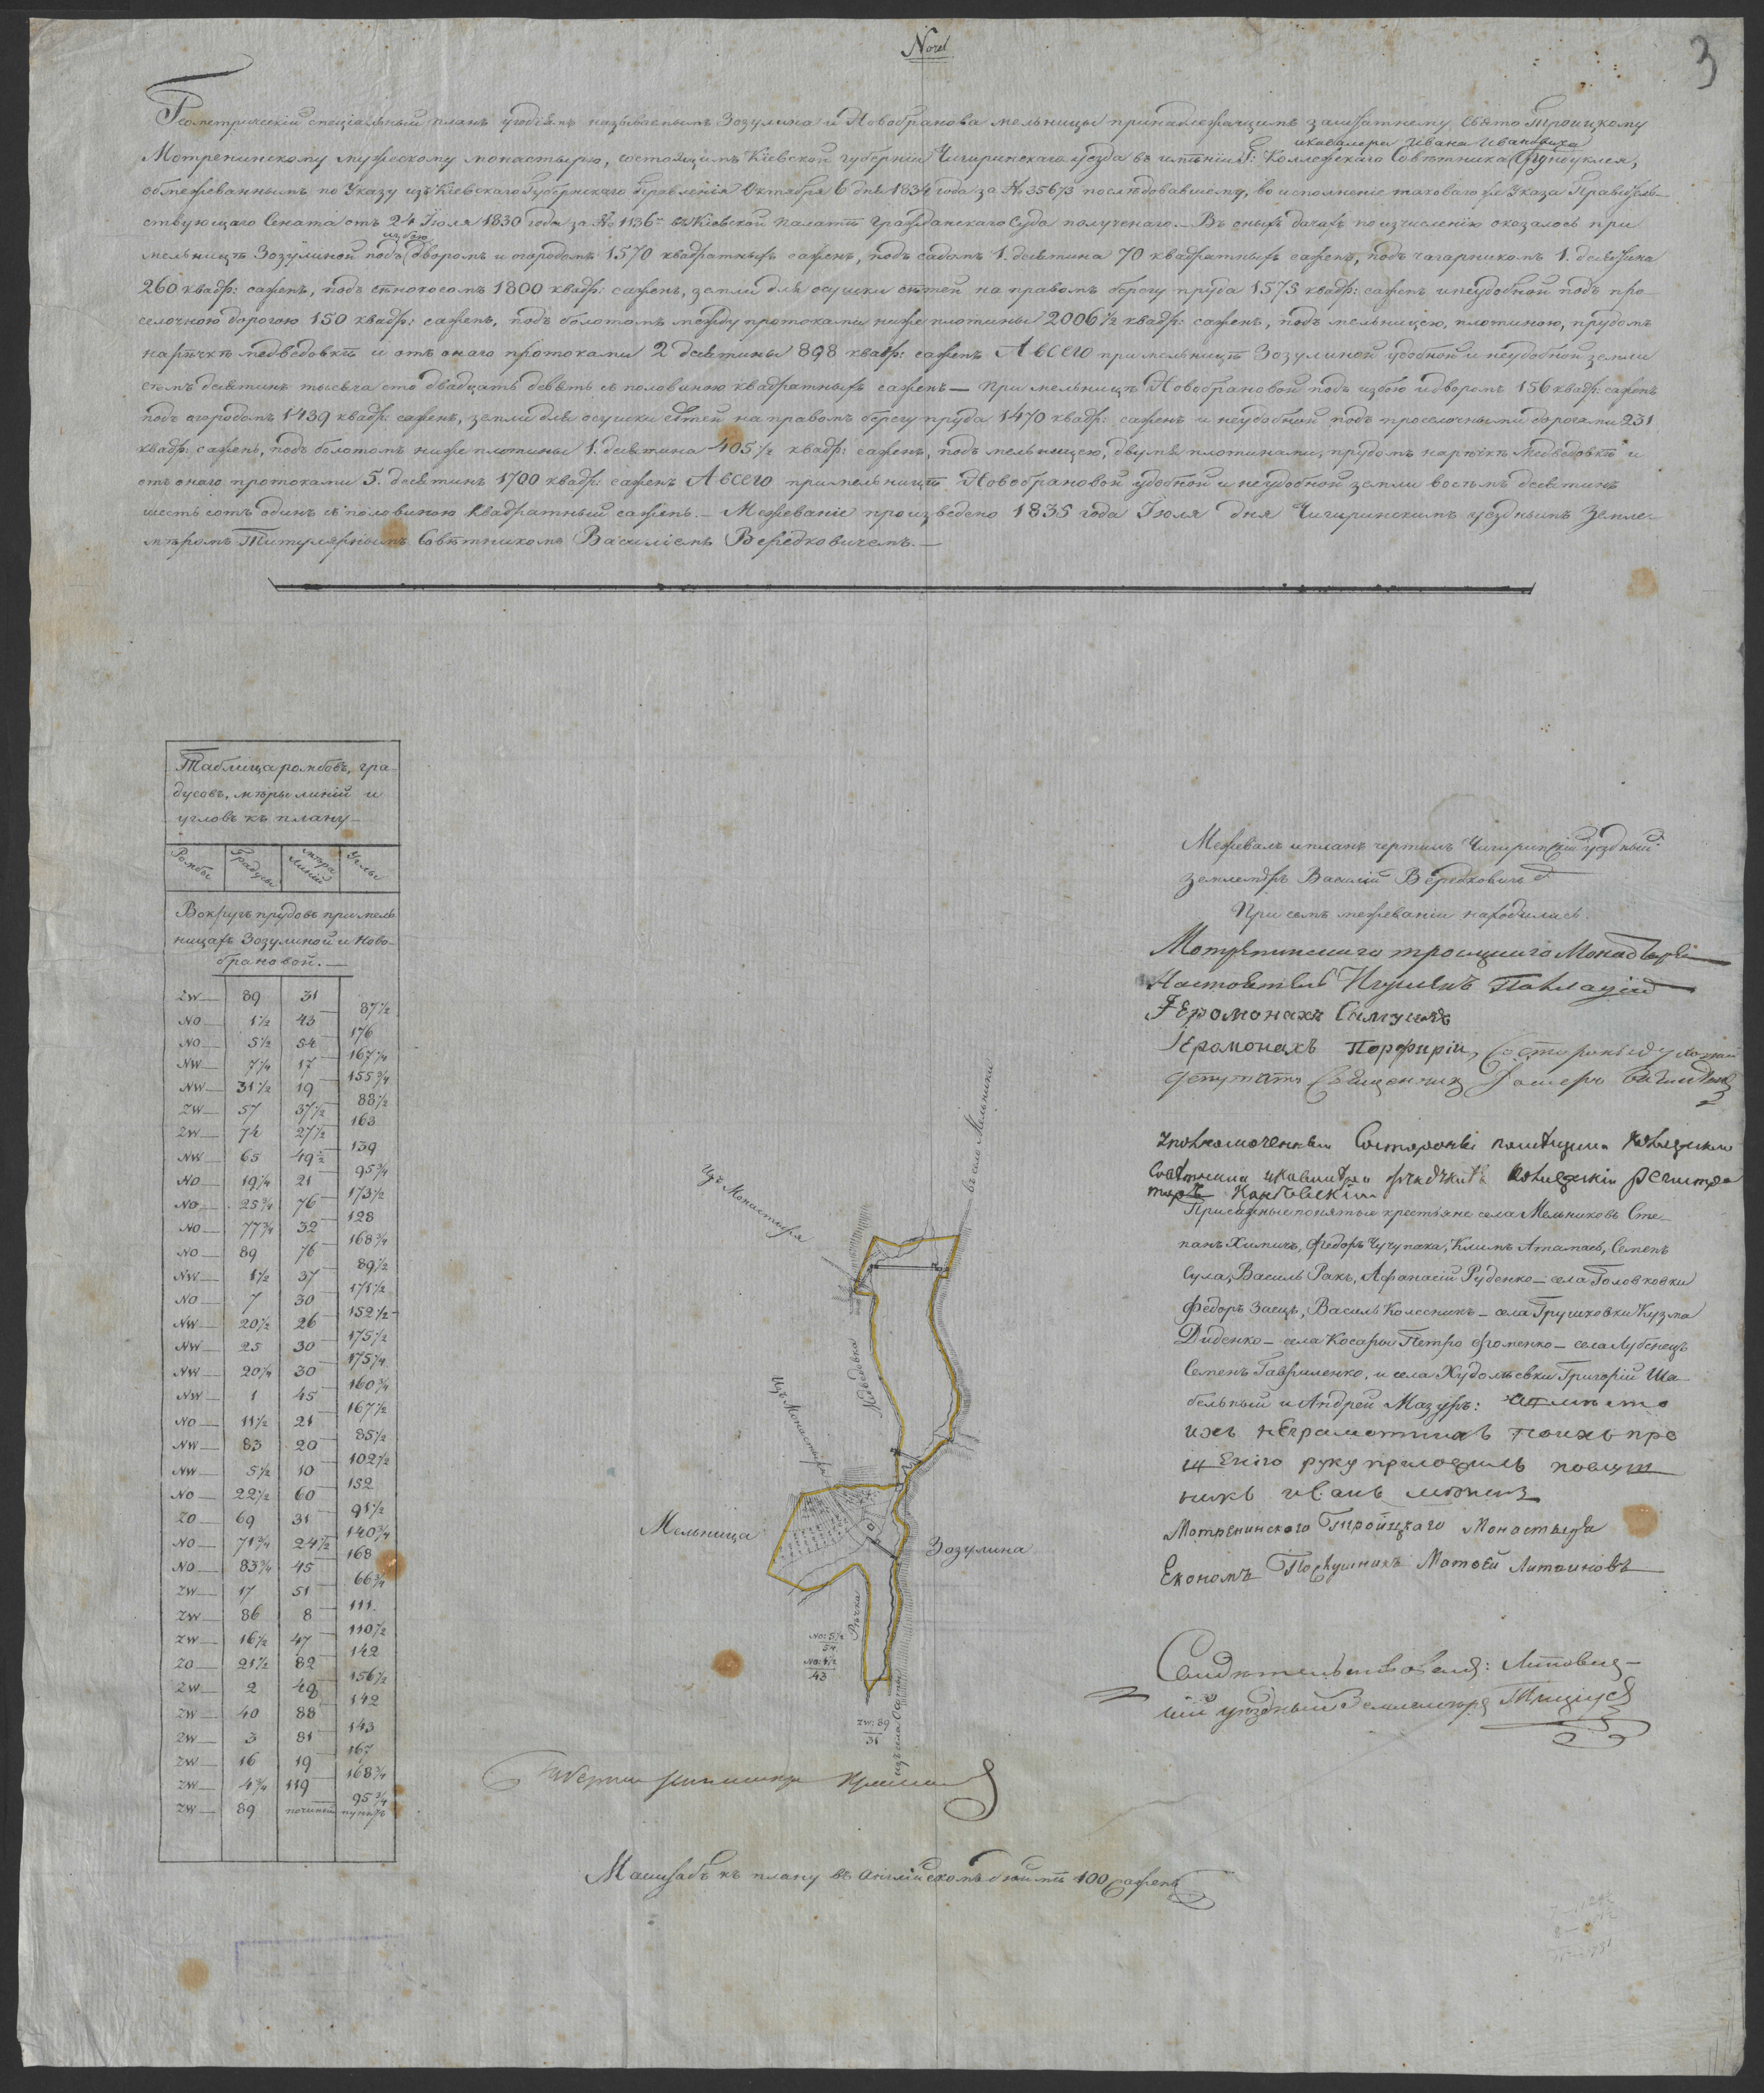 Nord
3
Геометрическій спеціальный планъ угодіямъ называемымъ Зозулина и Новобранова мельницы принадлежащимъ заштатному Свято Троицкому
и кавалера Ивана Ивановича
Мотренинскому мужескому монастырю, состоящимъ Кіевской губерніи Чигиринскаго уѣзда въ имѣніи Г: Коллежскаго Совѣтника Фундуклея,
обмежеваннымъ по Указу изъ Кіевскаго Губернскаго Правленія Октября 6 дня 1834 года за № 35673 послѣдовавшему, во исполненіе таковаго же Указа Правитель-
ствующаго Сената отъ 24 Іюля 1830 года за № 1136 въ Кіевской Палатѣ Гражданскаго Суда полученаго. — Въ оныхъ дачахъ по изчисленію оказалось при
избою
мельницѣ Зозулиной подъ дворомъ и огородомъ 1570 квадратныхъ сажень, подъ садомъ 1. десятина 70 квадратныхъ сажень, подъ чагарникомъ 1. десятина
260 квадр: сажень, подъ сѣнокосомъ 1800 квадр: сажень, земли для осушки сѣтей на правомъ берегу пруда 1575 квадр: сажень и неудобной подъ про-
селочною дорогою 150 квадр: сажень, подъ болотомъ между протоками ниже плотины 2006½ квадр: сажень, подъ мельницею, плотиною, прудомъ
на рѣчкѣ Медведовкѣ и отъ онаго протоками 2 десятины 898 квадр: сажень А всего при мельницѣ Зозулиной удобной и неудобной земли
семъ десятинъ тысяча сто двадцать девять съ половиною квадратныхъ сажень — При мельницѣ Новобрановой подъ избою и дворомъ 156 квадр: сажень
подъ огородомъ 1439 квадр: сажень, земли для осушки сѣтей на правомъ берегу пруда 1470 квадр: сажень и неудобной подъ проселочными дорогами 231
квадр: сажень, подъ болотомъ ниже плотины 1. десятина 405½ квадр: сажень, подъ мельницею, двумя плотинами, прудомъ на рѣчкѣ Медведовкѣ и
отъ онаго протоками 5. десятинъ 1700 квадр: сажень А всего при мельницѣ Новобрановой удобной и неудобной земли восемь десятинъ
шесть сотъ одинъ съ половиною квадратный сажень. — Межеваніе произведено 1835 года Іюля дня Чигиринскимъ уѣзднымъ Земле-
мѣромъ Титулярнымъ Совѣтникомъ Василіемъ Вередковичемъ. —
Таблица ромбовъ, гра-
дусовъ, мѣры линій и
угловъ къ плану
Ромбы Градусы мѣра линій Углы
Вокругъ прудовъ при мель-
ницахъ Зозулиной и Ново-
брановой. —
ZW 89 31
87½
NO 1½ 43
176
NO 5½ 54
167¼
NW 7¼ 17
155¾
NW 31½ 19
88½
ZW 57 37½
163
ZW 74 27½
139
NW 65 49½
95¾
NO 19¼ 21
173½
NO 25¾ 76
128
NO 77¾ 32
168¾
NO 89 76
89½
NW 1½ 37
171½
NO 7 30
152½
NW 20½ 26
175½
NW 25 30
175¼
NW 20¼ 30
160¾
NW 1 45
167½
NO 11½ 21
85½
NW 83 20
102½
NW 5½ 10
152
NO 22½ 60
91½
ZO 69 31
140¾
NO 71¾ 24½
168
NO 83¾ 45
66¾
ZW 17 51
111
ZW 86 8
110½
ZW 16½ 47
142
ZO 21½ 82
156½
ZW 2 49
142
ZW 40 88
143
ZW 3 81
167
ZW 16 19
168¾
ZW 4¾ 119
95¾
ZW 89 початый пунктъ
въ село Мельники
Изъ Монастыря
Медведовка
Изъ Монастыря
Мельница
Зозулина
Рѣчка
NO: 5½
54
NO: 1½
43
ZW: 89
31
изъ села
Межевалъ и планъ чертилъ Чигиринскій уѣздный
землемѣръ Василій Вередковичъ
При семъ межеваніи находились:
Мотренинскаго троицкаго Монастыря
Настоятель Игуменъ
Іеромонахъ Самуилъ
Іеромонахъ Порфирій,
депутатъ Священникъ
Присяжные понятые крестьяне села Мельниковъ Сте-
панъ Химичъ, Федоръ Чучупака, Климъ Атамась, Семенъ
Сула, Василь Ракъ, Афанасій Руденко — села Головковки
Федоръ Заецъ, Василь Колесникъ — села Грушковки Кузма
Диденко — села Косары Петро Фоменко — села Лубенецъ
Семенъ Гавриленко, и села Худолѣевки Григорій Ша-
бельный и Андрей Мазуръ: а вмѣсто
ихъ неграмотныхъ по ихъ про
шенію руку приложилъ
Мотренинскаго Троицкаго Монастыря
Економъ Послушникъ Матвей Литвиновъ
Свидѣтельствовалъ:
уѣздный Землемѣръ
Маштабъ къ плану въ англійскомъ дюймѣ 100 сажень